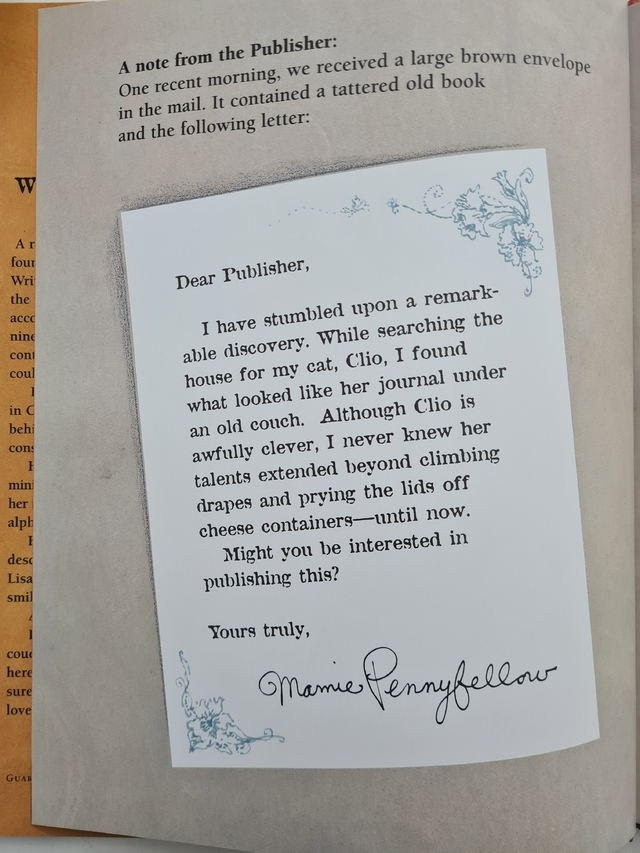 A note from the Publisher:
One recent morning, we received a large brown envelope
in the mail. It contained a tattered old book
and the following letter:
Dear Publisher,
I have stumbled upon a remark-
able discovery. While searching the
house for my cat, Clio, I found
what looked like her journal under
an old couch. Although Clio is
awfully clever, I never knew her
talents extended beyond climbing
drapes and prying the lids off
cheese containers—until now.
Might you be interested in
publishing this?
Yours truly,
Mamie Pennyfellow